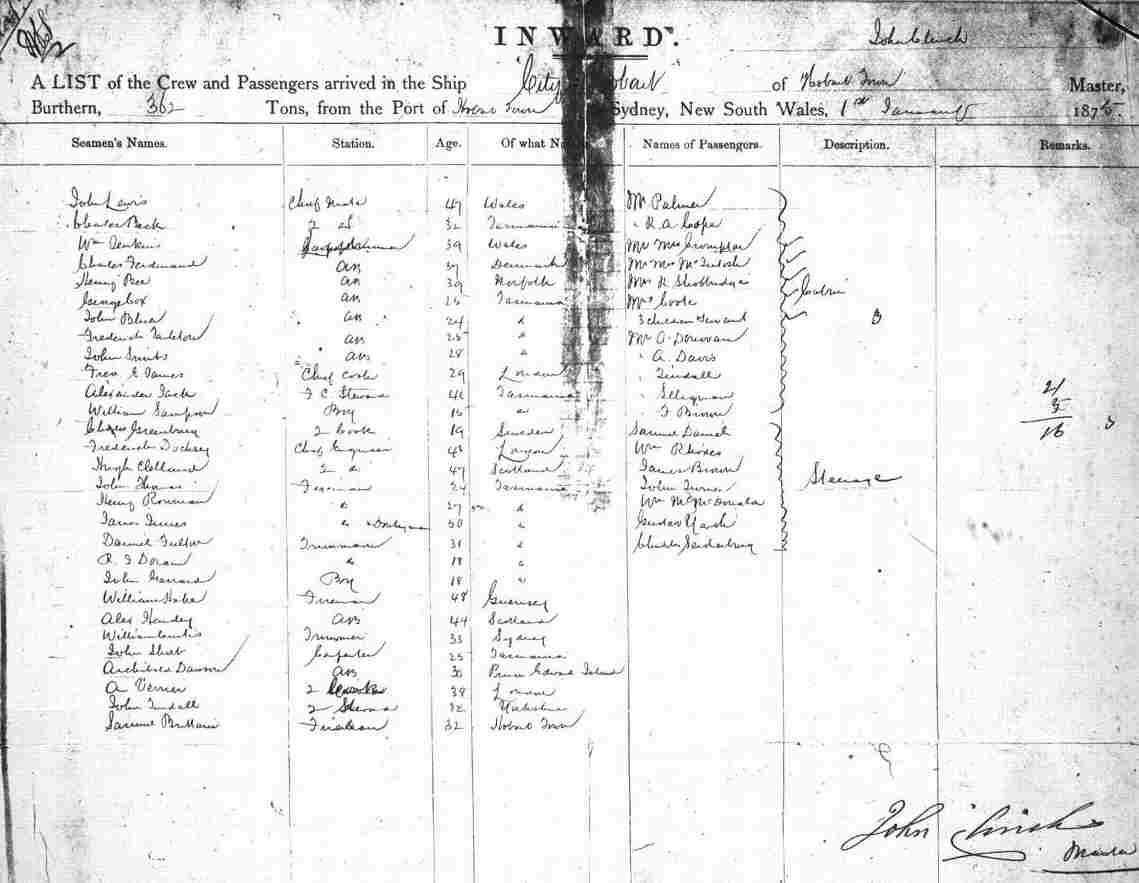 INWARD.
John Clinch
A LIST of the Crew and Passengers arrived in the Ship "City Hobart" of Hobart Town Master,
Burthern, 362 Tons, from the Port of Hobart Town Sydney, New South Wales, 1st January 187
Seamen's Names. Station. Age. Of what Names of Passengers. Description. Remarks.
John Lewis Chief Mate 47 Wales Mr Palmer
Charles Beck 2 do 32 Tasmania " R A Cope
Wm Jenkins 39 Wales Mr Mrs Crompton
Charles Ferdinand AB 37 Denmark Mr Mrs McIntosh
Henry Bee AB 39 Norfolk Mrs R Shoobridge Cabin
George Cox AB 25 Tasmania Mrs Cook
John Blue AB 24 " 3 children Servant 3
Frederick Tarleton AB 25 " Mr A Donovan
John Smith AB 28 " " A. Davis
E James Chief Cook 29 London " Tindall
Alexander Jack F C Steward 41 Tasmania " Seligman 21
William Sampson Boy 16 " " F Brown 5
Greenburg 2 Cook 19 Sweden Samuel Daniel 16 3
Frederick Chief Engineer London Wm Rhodes
Hugh Clelland 2 " 47 Scotland James Brown Steerage
John Thomas Fireman 24 Tasmania John Turner
Henry Rowman " 27 " Wm McDonald
James " 30 " Gustav
Daniel Trimmer 31 " Charles
R. F Doran " 18 "
John Gerrard Boy 18 "
William Fireman 48 Guernsey
Alex Handey AB 44 Scotland
William Curtis Trimmer 33 Sydney
John Short Carpenter 25 Tasmania
Archibald Dawson AB 30 Prince Edward Island
A Verrier 2 Cook 38 London
John Tindall 2 Steward 32
Samuel Brittain Fireman 32 Hobart Town
John Clinch
Master